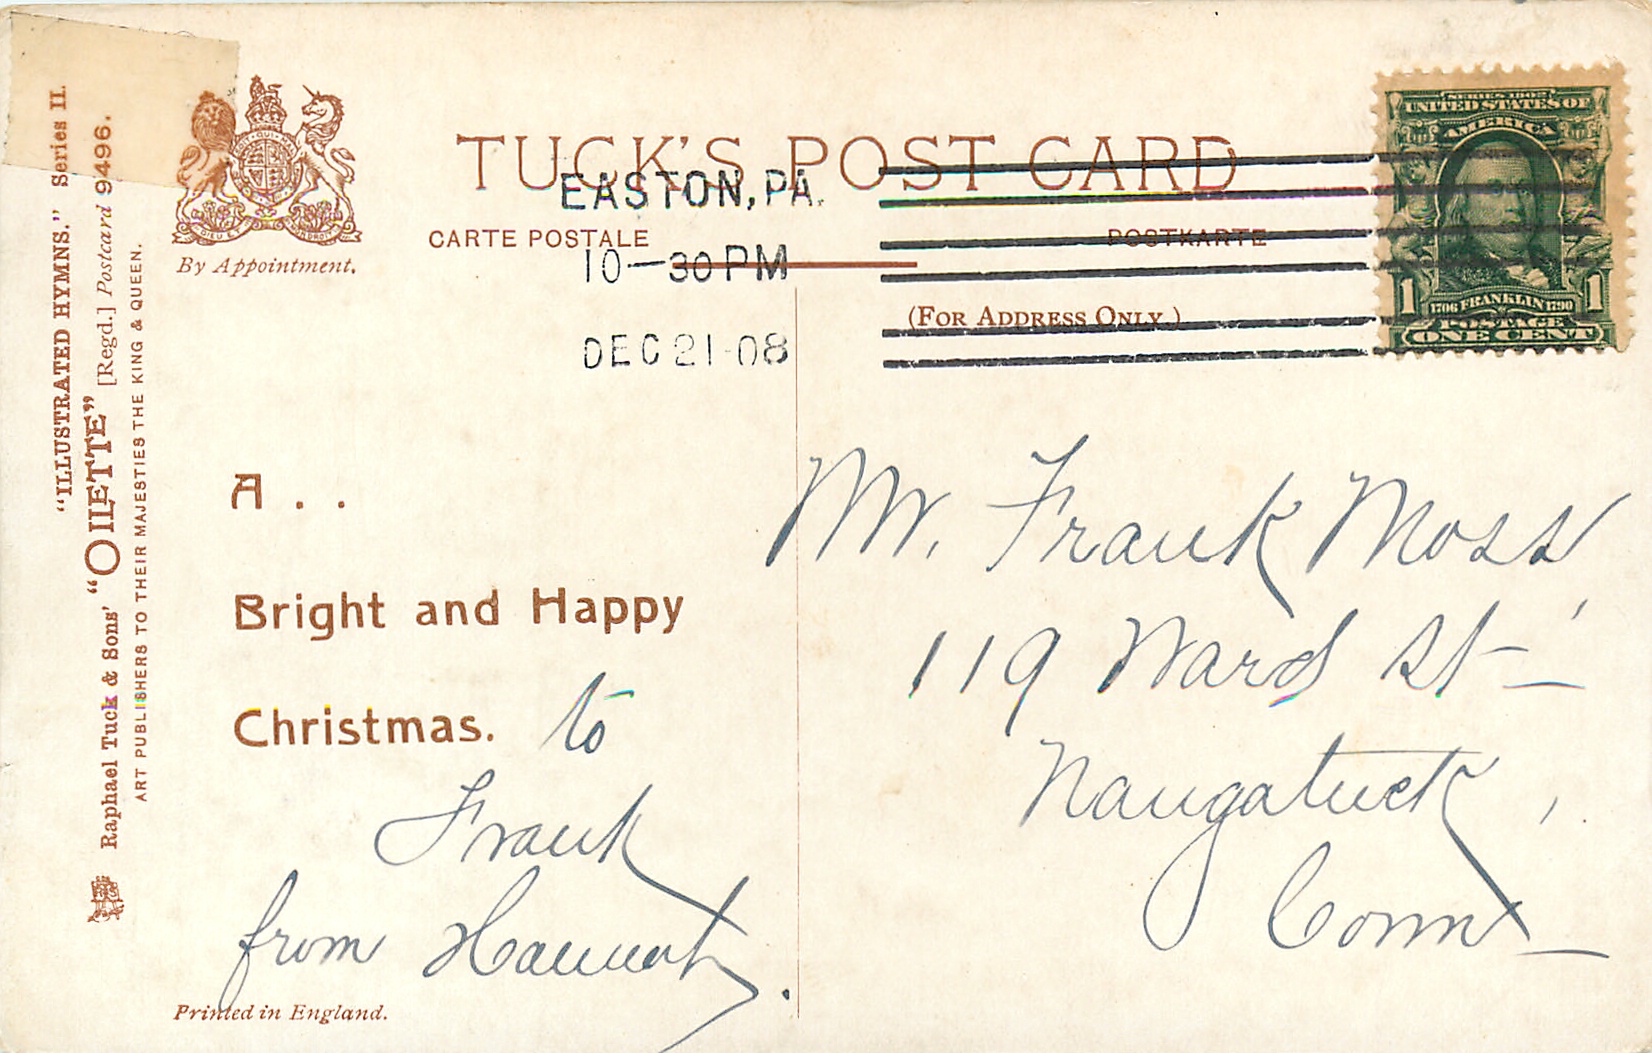 "ILLUSTRATED HYMNS." Series II.
Raphael Tuck & Sons' "OILETTE" [Regd.] Postcard 9496.
ART PUBLISHERS TO THEIR MAJESTIES THE KING & QUEEN.
By Appointment.
TUCK'S POST CARD
CARTE POSTALE
POSTKARTE
(FOR ADDRESS ONLY.)
EASTON, PA.
10-30 PM
DEC 21 08
SERIES 1902
UNITED STATES OF
AMERICA
1 1706 FRANKLIN 1790 1
POSTAGE
ONE CENT
A . .
Bright and Happy
Christmas. to
Frank
from Hannah.
Mr. Frank Moss,
119 Ward St-
Naugatuck,
Conn
Printed in England.